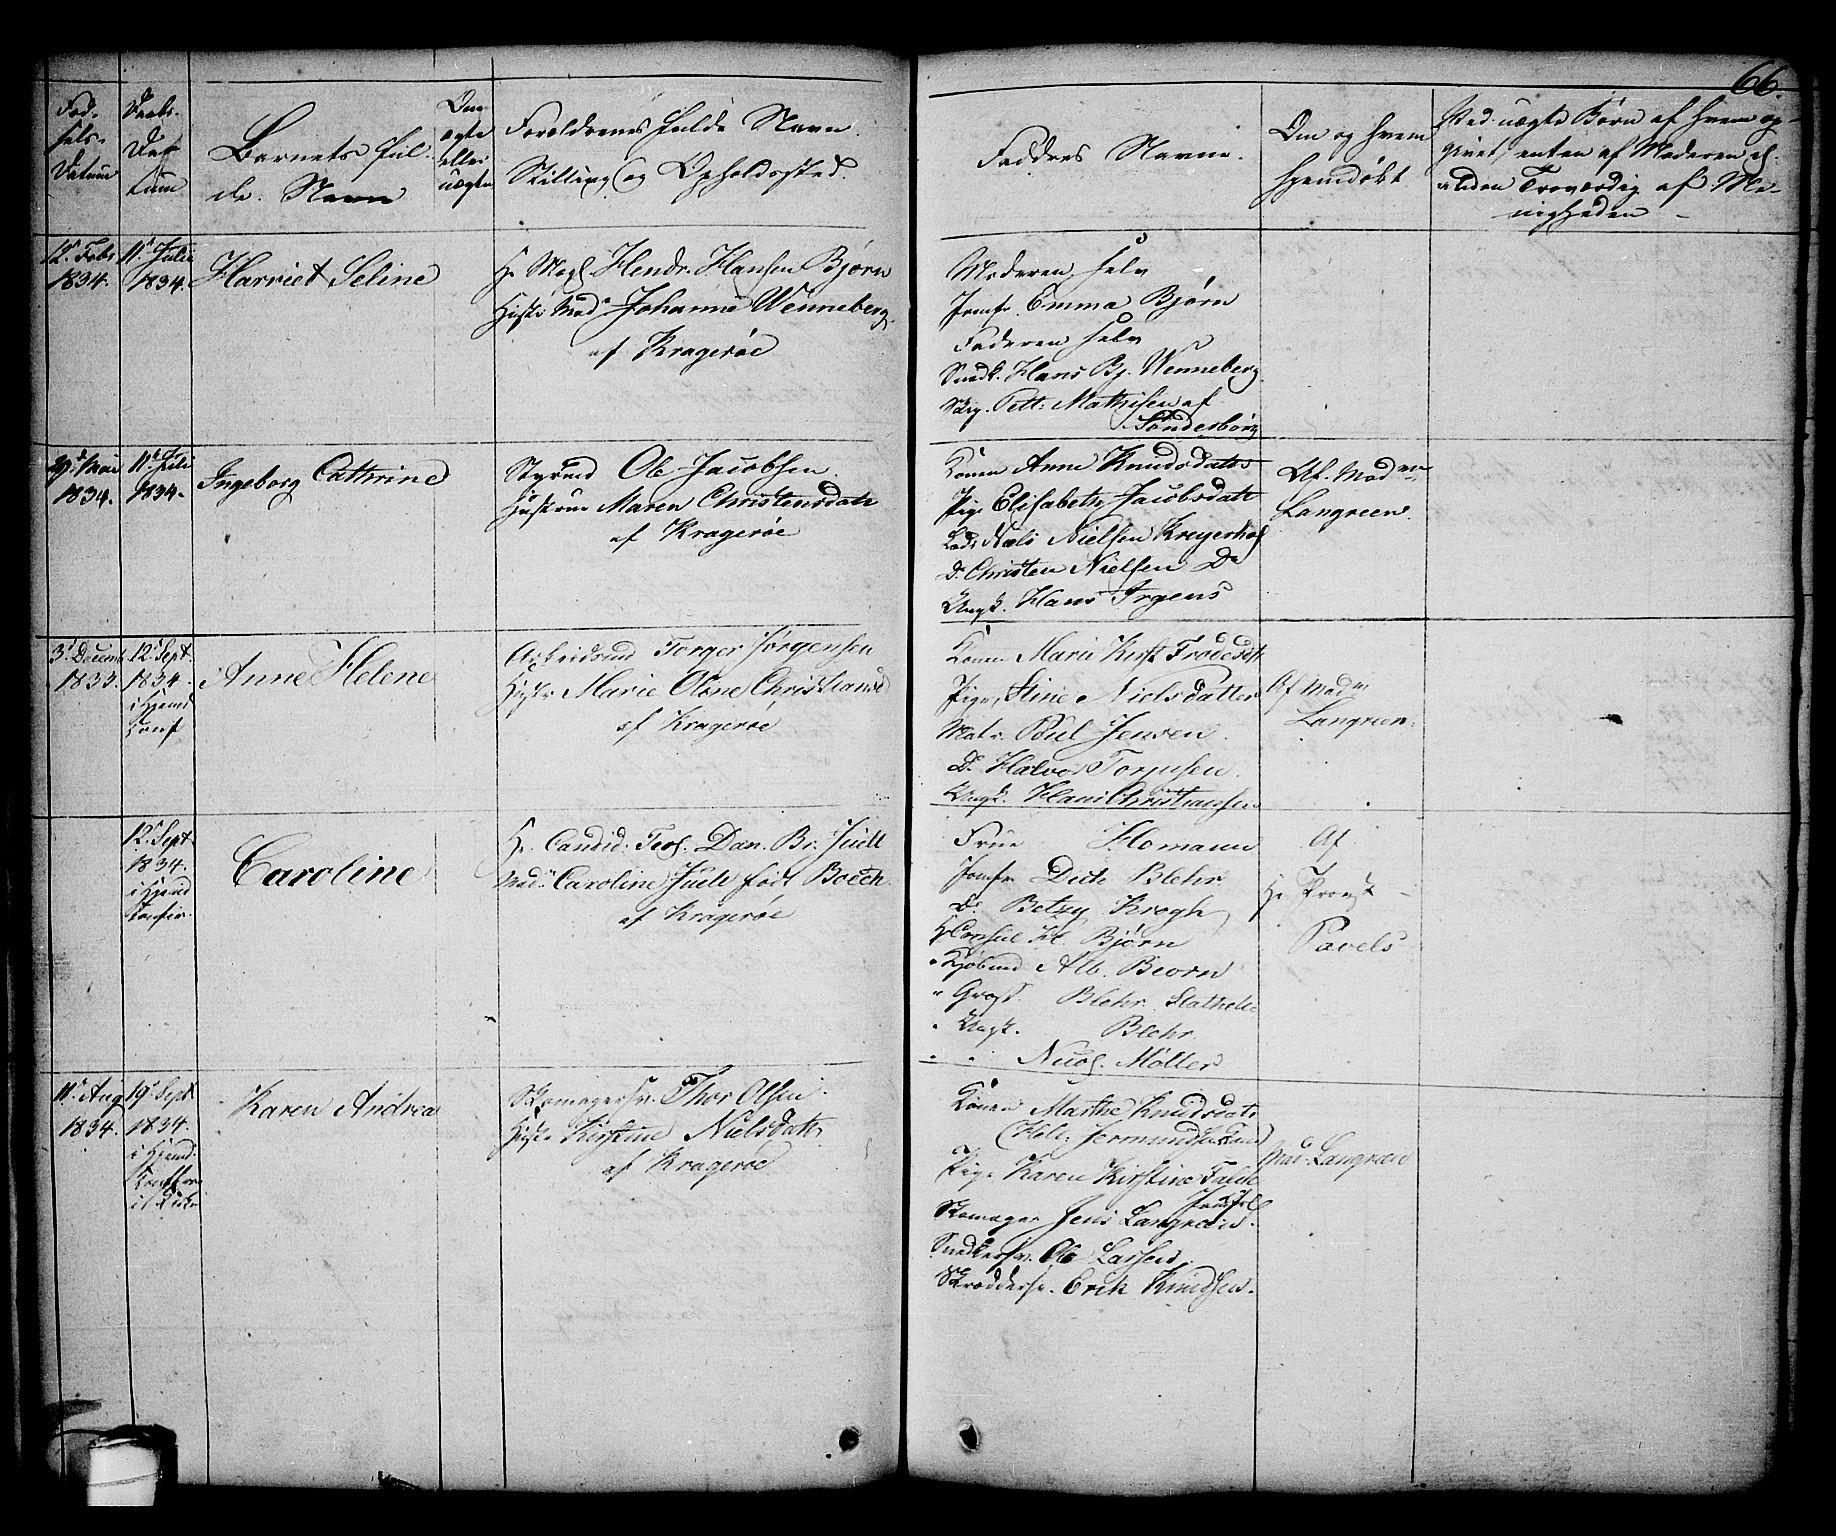 66.
Fød-
sels-
Datum
Daabs-
Da-
tum
Barnets ful-
de Navn
Om
ægte
eller
uægte
Forældrenes fulde Navn
Stilling og Opholdssted.
Faddres Navne.
Om og hvem
hjemdøbt
Ved uægte Børn af hvem op-
givet, enten af Moderen el.
anden Troværdig af Me-
nigheden
12t Febr
1834.
11t Julii
1834.
Harriet Seline
Hr Mægl. Hendr. Hansen Bjørn
Hustr Mad. Johanne Wenneberg
af Kragerøe
Moderen selv
Jomfr. Emma Bjørn
Faderen selv
Snedk. Hans Bj. Wenneberg
Pett: Mathisen af
Sønderborg
Mai
1834.
11t Juli
1834.
Ingeborg Cathrine
Styrmd Ole Jacobsen
Hustrue Maren Christensdatr
af Kragerøe
Konen Anne Knudsdatr
Pige Elisabeth Jacobsdatr
Lods Niels Nielsen Kreyerhol
Do Christen Nielsen Do
Ungk. Hans Irgens
Af Madm
Langreen.
3t Decemb
1833.
12t Sept.
1834.
i Hjemd
Conf
Anne Helene
Arbeidsmd Torger Jørgensen
Hustr Marie Olene Christiansd
af Kragerøe
Konen Marie Kirst. Frodesdtr
Pige, Stine Nielsdatter
Matr. Poul Jensen.
Do Halvor Torgusen.
Ungk. Hans Christiansen
Af Madm
Langreen.
12t Sept.
1834.
i Hjemd
Confir.
Caroline
Hr Candid. Teol. Dan. Br. Juell
Mad. Caroline Juell født Boeck.
af Kragerøe
Frue Homann
Jomfr Ditte Blehr
Do Betzy Krogh
Hr Consul H. Bjørn
" Kjøbmd Alb. Beorn
" Gross. Blehr Stathelle
" Ungk. Blehr.
" " Nicol. Møller
Af
Hr Provst
Pavels
11t Aug
1834.
19t Sept
1834.
i Hjemd.
Karen Andrea
Skomagersv. Thor Olsen
Hustr Kirstine Nielsdatr
af Kragerøe
Konen Marthe Knudsdatr
Pige Karen Kirstine
Skomager Jens Langreen.
Snedkersv. Ole Larsen,
Skreddersv. Erik Knudsen.
Mad. Langreen